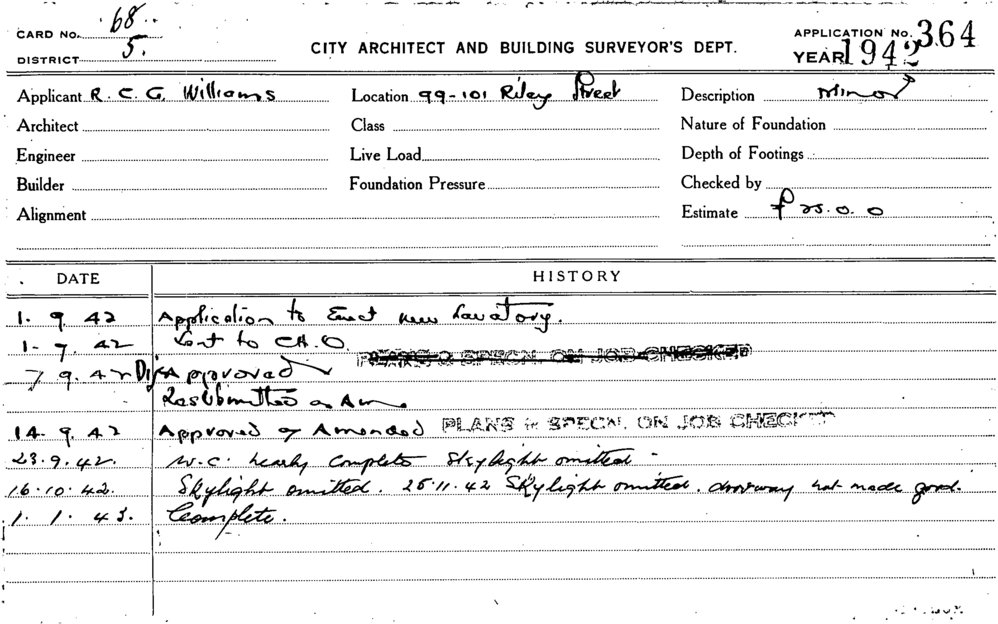 CARD No. 68
DISTRICT 5.
CITY ARCHITECT AND BUILDING SURVEYOR'S DEPT.
APPLICATION No. 364
YEAR 1942
Applicant R. C. G. Williams Location 99-101 Riley Street Description Minor
Architect Class Nature of Foundation
Engineer Live Load Depth of Footings
Builder Foundation Pressure Checked by
Alignment Estimate £ 25.0.0
DATE HISTORY
1. 9. 42 Application to Erect new Lavatory.
1- 9. 42 Sent to C.H.O.
PLANS & SPECN. ON JOB CHECKED
7 9. 42 DisApproved
Resubmitted as Am
14. 9. 42 Approved as Amended PLANS & SPECN. ON JOB CHECKED
23.9.42. W.C. nearly complete Skylight omitted -
16.10.42. Skylight omitted. 25.11.42 Skylight omitted. doorway not made good.
1. 1. 43. Complete.